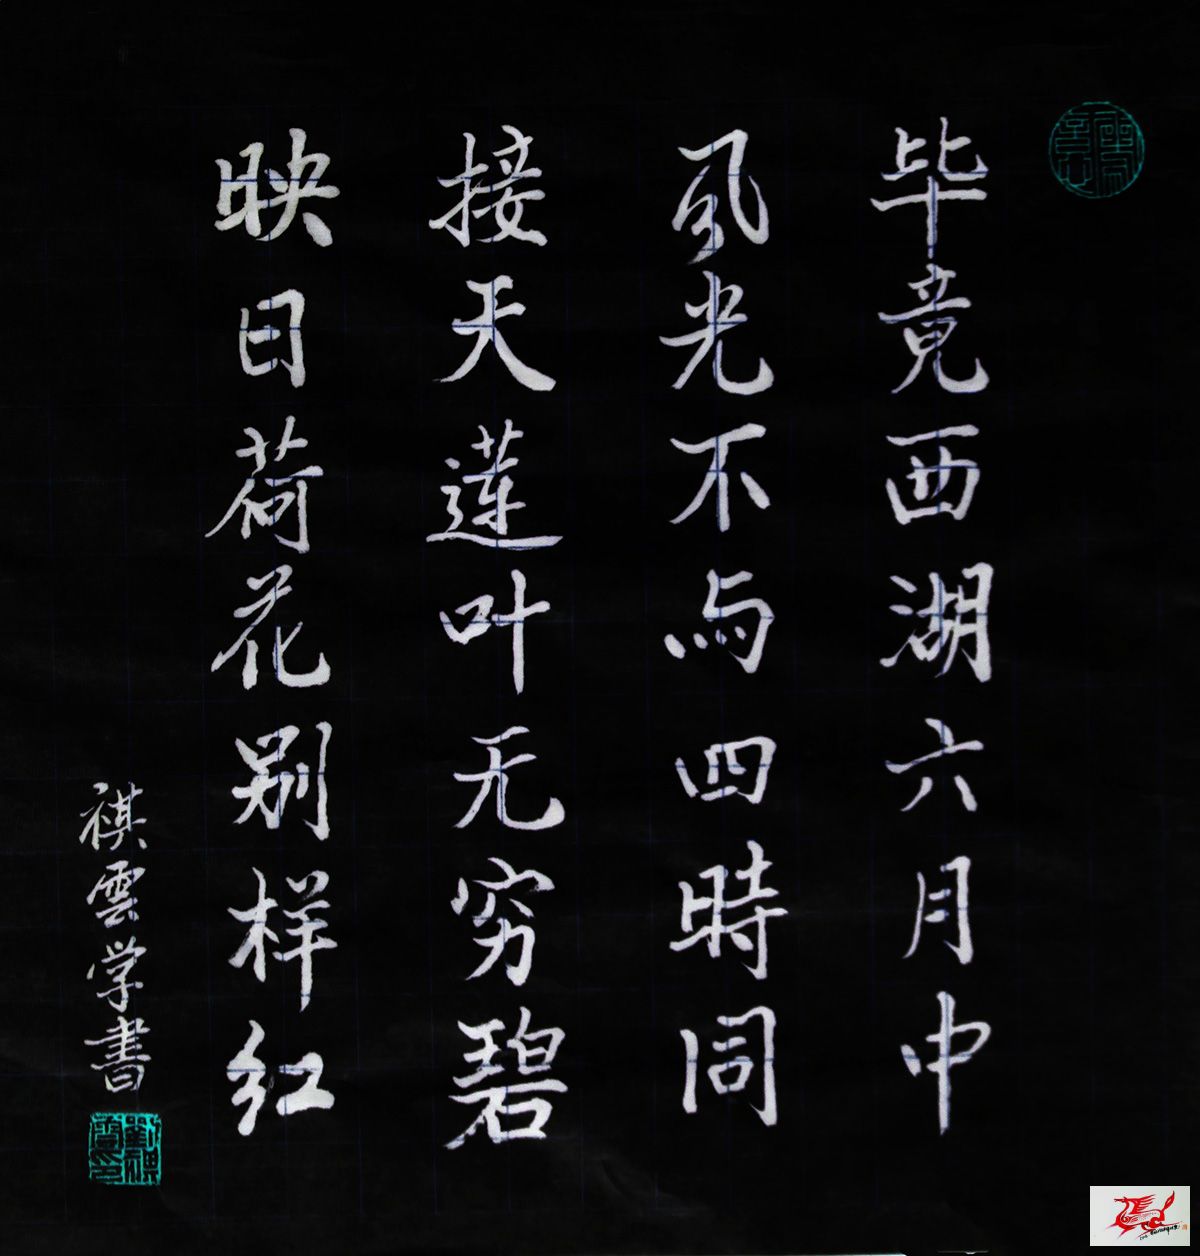 毕竟西湖六月中
风光不与四時同
接天莲叶无穷碧
映日荷花别样红
祺雲学書